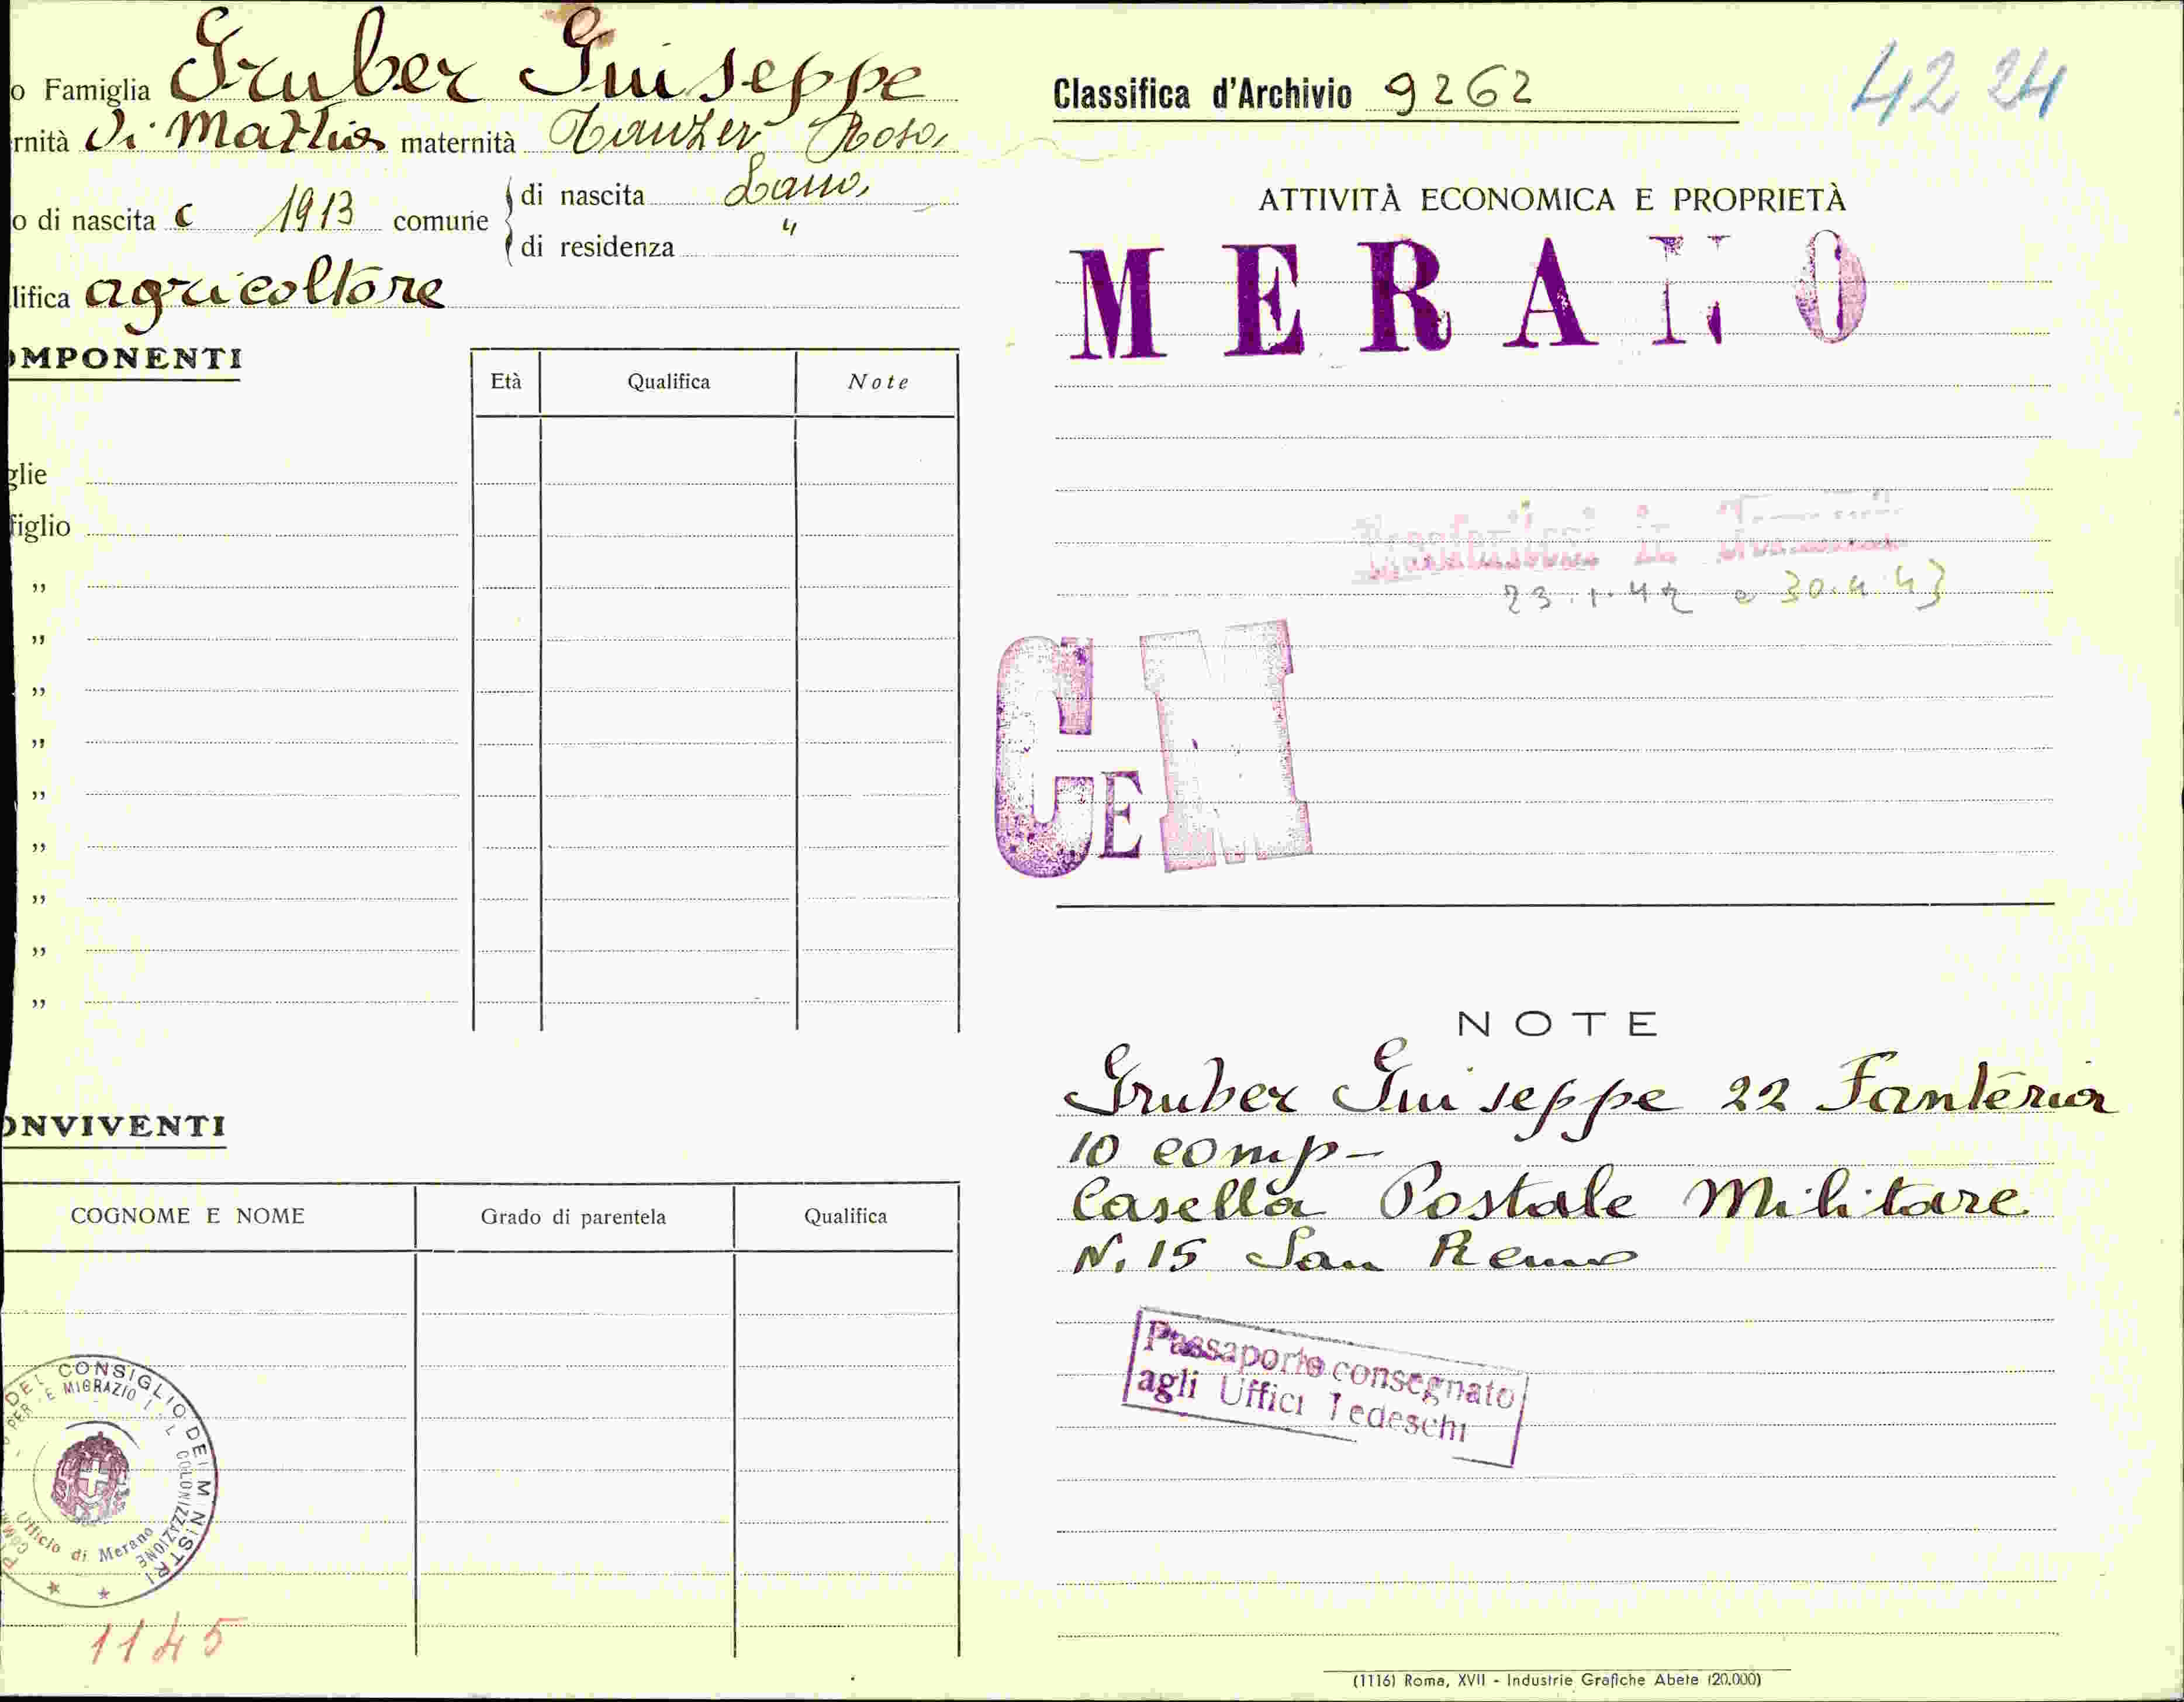 o Famiglia Gruber Giuseppe
rnità di Mattia maternità Rosa
o di nascita c 1913 comune
di nascita Lana
di residenza "
lifica agricoltore
OMPONENTI
Età Qualifica Note
glie
figlio
„
„
„
„
„
„
„
„
„
ONVIVENTI
COGNOME E NOME Grado di parentela Qualifica
DEL CONSIGLIO DEI MINISTRI
PER E MIGRAZIO COLONIZZAZIONE
Ufficio di Merano
1145
Classifica d'Archivio 9262
4224
ATTIVITÀ ECONOMICA E PROPRIETÀ
MERANO
23.1.42 e 30.4.43
CEM
NOTE
Gruber Giuseppe 22 Fanteria
10 comp-
Casella Postale Militare
N. 15 San Remo
Passaporto consegnato
agli Uffici Tedeschi
(1116) Roma, XVII - Industrie Grafiche Abete (20.000)